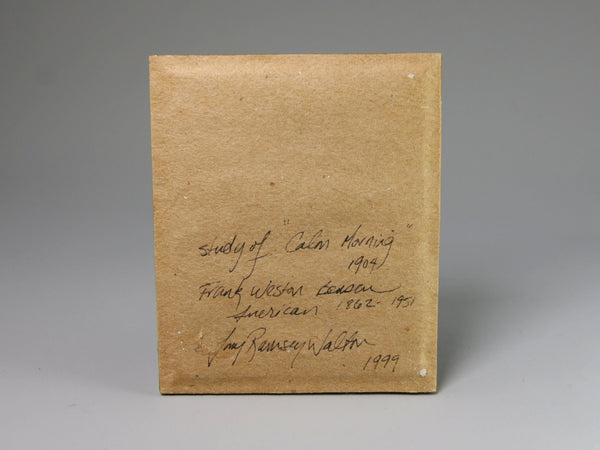 study of "Calm Morning"
1904
Frank Weston Benson
American 1862-1951
Ramsey Walton
1999